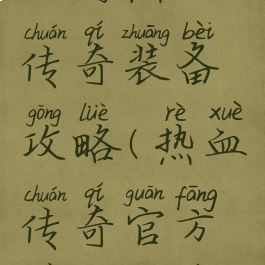 chuán qí zhuāng bèi
传奇装备
gōng lüè rè xuè
攻略(热血
chuán qí guān fāng
传奇官方